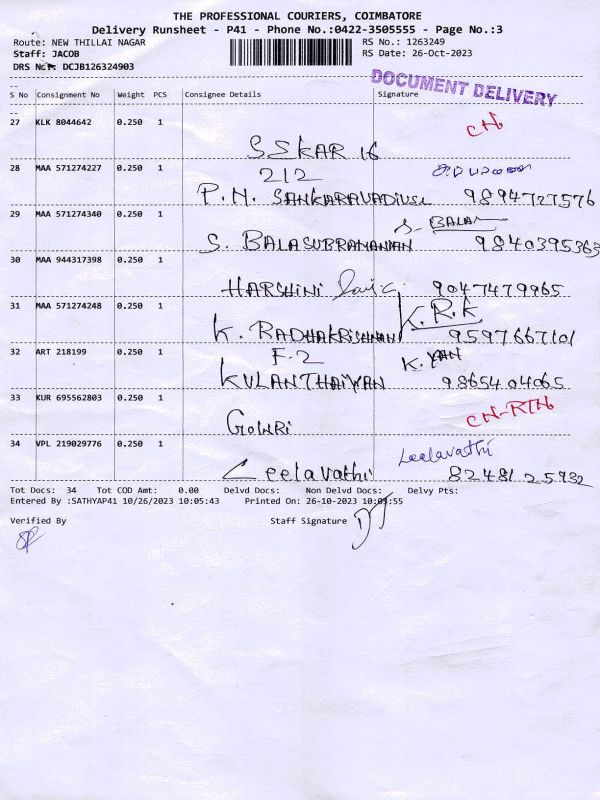 THE PROFESSIONAL COURIERS, COIMBATORE
Delivery Runsheet - P41 - Phone No.:0422-3505555 - Page No.:3
Route: NEW THILLAI NAGAR RS No.: 1263249
Staff: JACOB RS Date: 26-Oct-2023
DRS No.: DCJB126324903
DOCUMENT DELIVERY
S No Consignment No Weight PCS Consignee Details Signature
27 KLK 8044642 0.250 1 CN
SSKAR 16
28 MAA 571274227 0.250 1 212
P. N. SANKARAVADIVEL 9894727576
29 MAA 571274340 0.250 1 S. BALAN
S. BALASUBRAMANIAN 9840395363
30 MAA 944317398 0.250 1
HARSHINI 9047479965
31 MAA 571274248 0.250 1 K.R.K
K. RADHAKRISHNAN 9597667101
32 ART 218199 0.250 1 F-2 K.YAN
KULANTHAIYAN 9865404065
33 KUR 695562803 0.250 1 CN-RTN
GOWRI
34 VPL 219029776 0.250 1 Leelavathi
Leelavathi 8248125932
Tot Docs: 34 Tot COD Amt: 0.00 Delvd Docs: Non Delvd Docs: Delvy Pts:
Entered By :SATHYAP41 10/26/2023 10:05:43 Printed On: 26-10-2023
Verified By Staff Signature